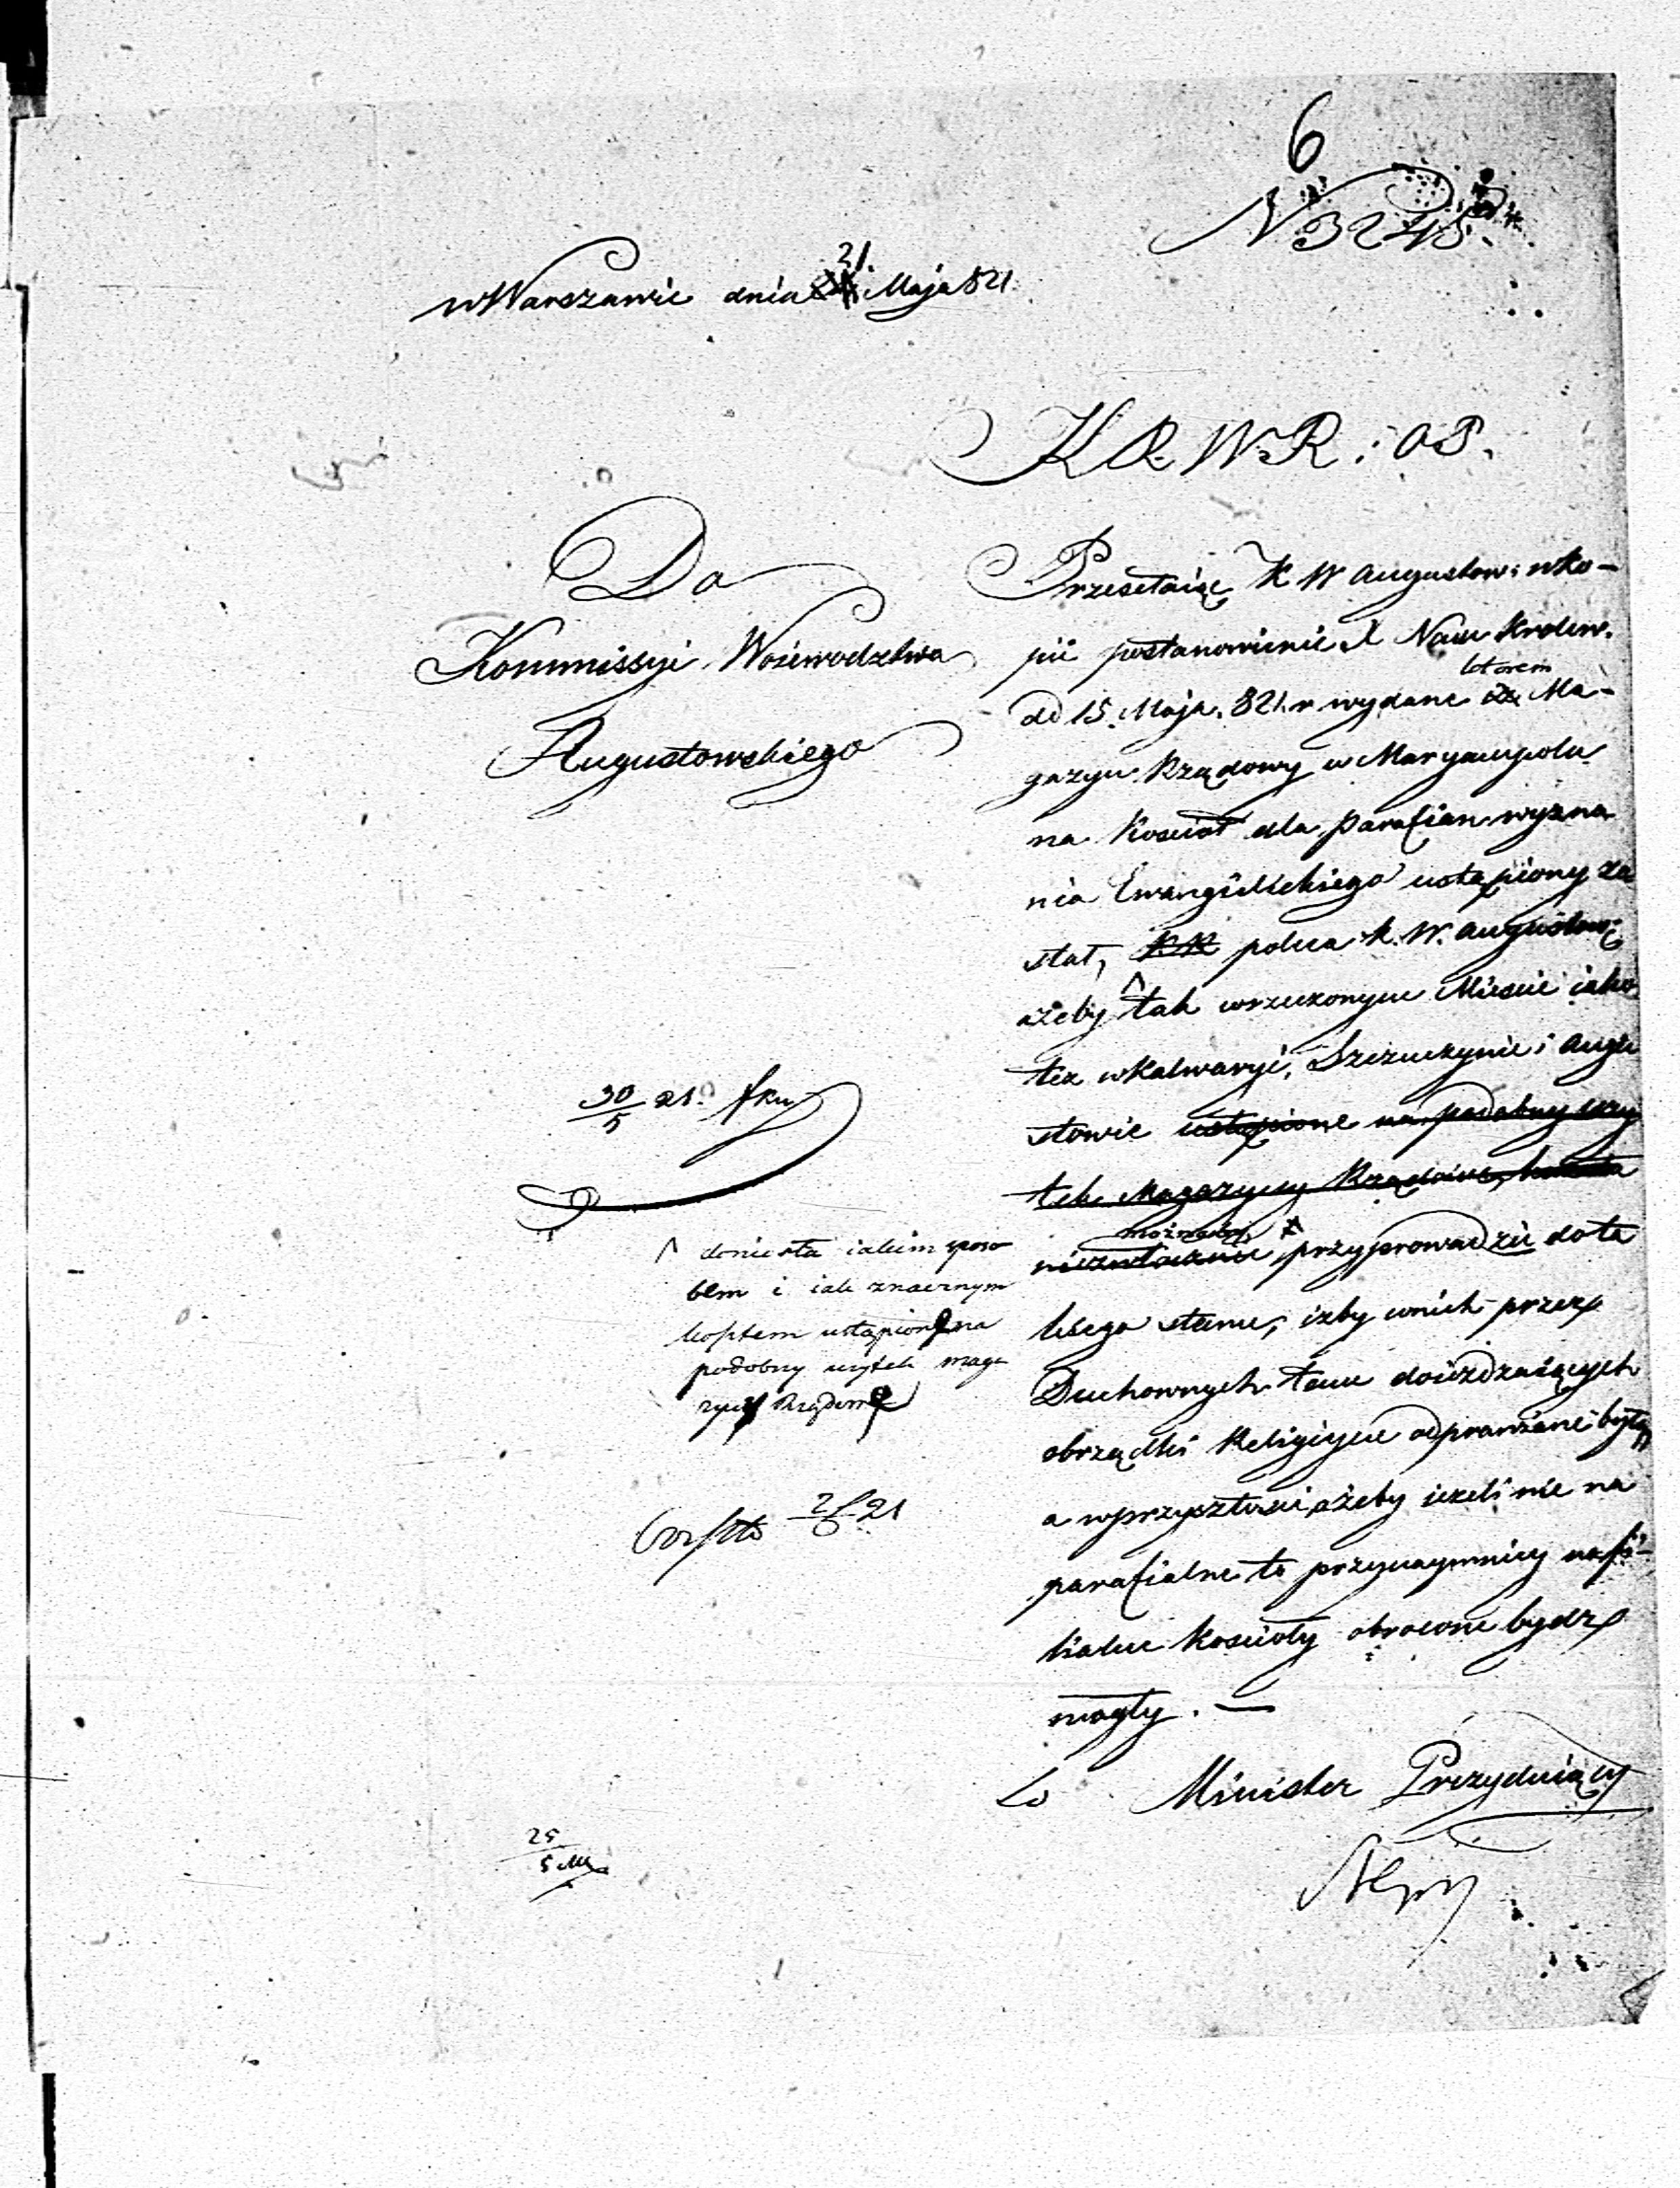 6
N 3245.
w Warszawie dnia 21. Maja 821.
K R W R i O P.
Do
Kommissyi Woiewodztwa
Augustowskiego
Przesełaiąc K W Augustow: w ko-
pii postanowienie X Nam: Krolew.
dd 15. Maja. 821. r wydane ktorem Ma-
gazyn Rządowy w Maryampolu
na Kościoł dla parafian wyzna
nia Ewangelickiego ustąpiony zo
stał, poleca K. W. Augustow:
ażeby tak w rzeczonym Mieście iako
też w Kalwaryi, Szczuczynie i Augu
stowie ustąpione na podobny uży
tek Magazyny Rządowe,
możnaby przyprowadzić do ta
kiego stanu, iżby w nich przez
Duchownych tam doieżdżaiących
obrządki Religiyne odprawiane były
a w przyszłości ażeby ieżeli nie na
parafialne to przynaymniey na fi-
lialne Kościoły obrocone bydź
mogły. —
Minister Prezyduiący
30/5 21.
doniosła iakim sposo
bem i iak znacznym
kosztem ustąpione na
podobny użytek maga
zyny Rządowe
21
25/5